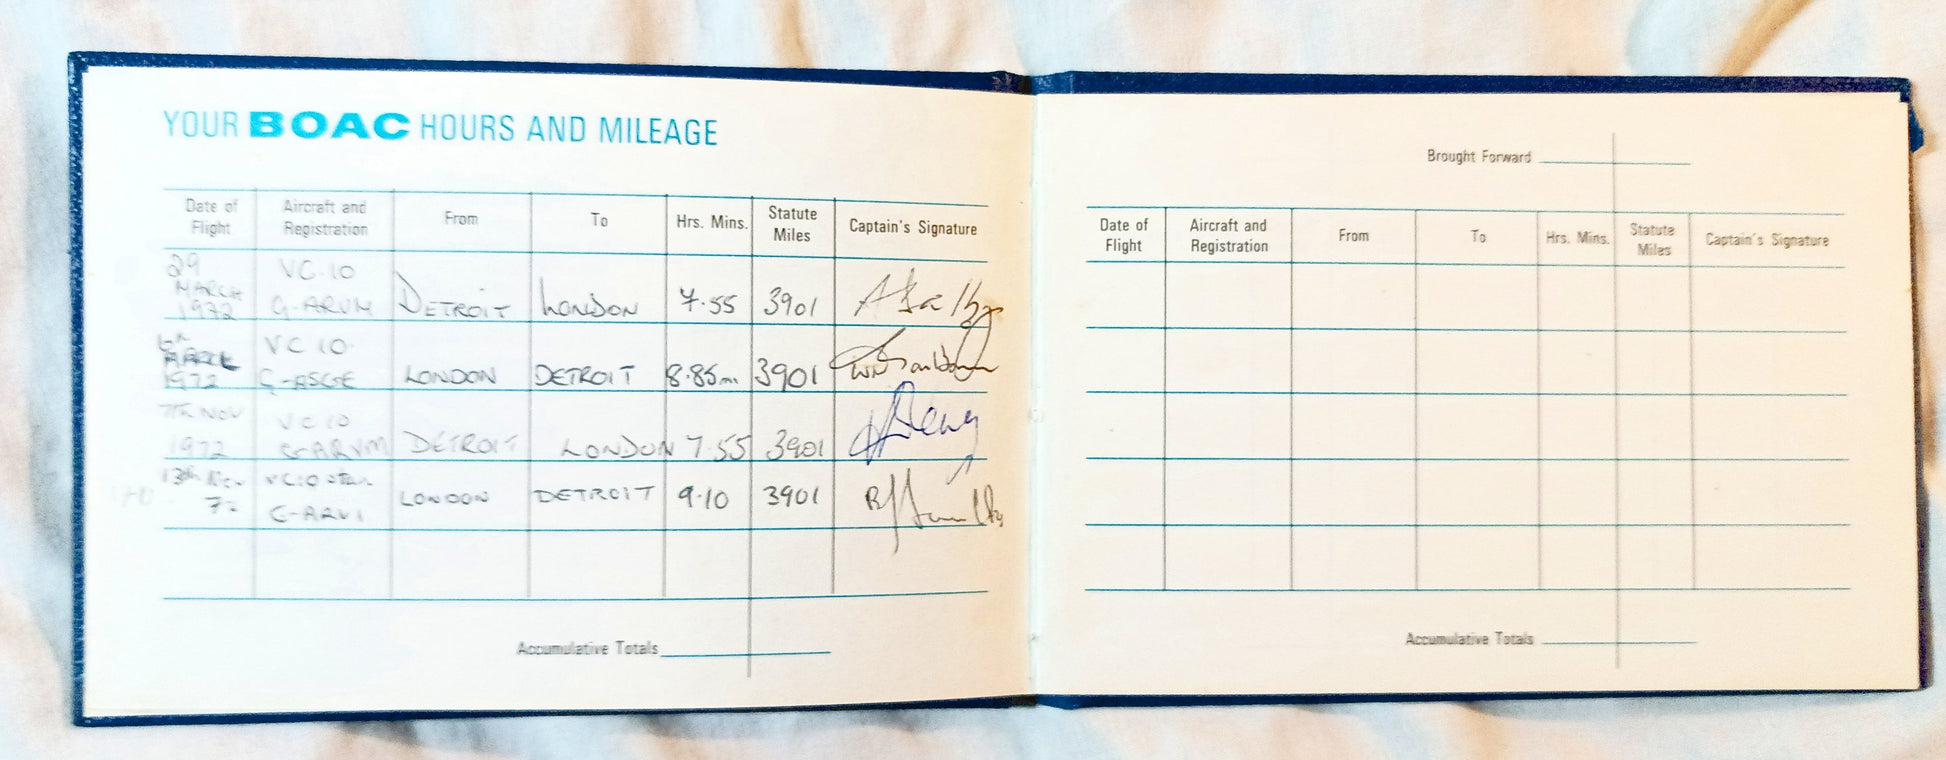 YOUR BOAC HOURS AND MILEAGE
Date of Flight Aircraft and Registration From To Hrs. Mins. Statute Miles Captain's Signature
29 MARCH 1972 VC.10 G-ARVM DETROIT LONDON 7.55 3901
MARCH 1972 VC 10 G-ASGE LONDON DETROIT 8.85m 3901
7th NOV 1972 VC 10 G-ARVM DETROIT LONDON 7.55 3901
13th Nov 72 VC10 LONDON DETROIT 9.10 3901
Accumulative Totals
Brought Forward
Date of Flight Aircraft and Registration From To Hrs. Mins. Statute Miles Captain's Signature
Accumulative Totals